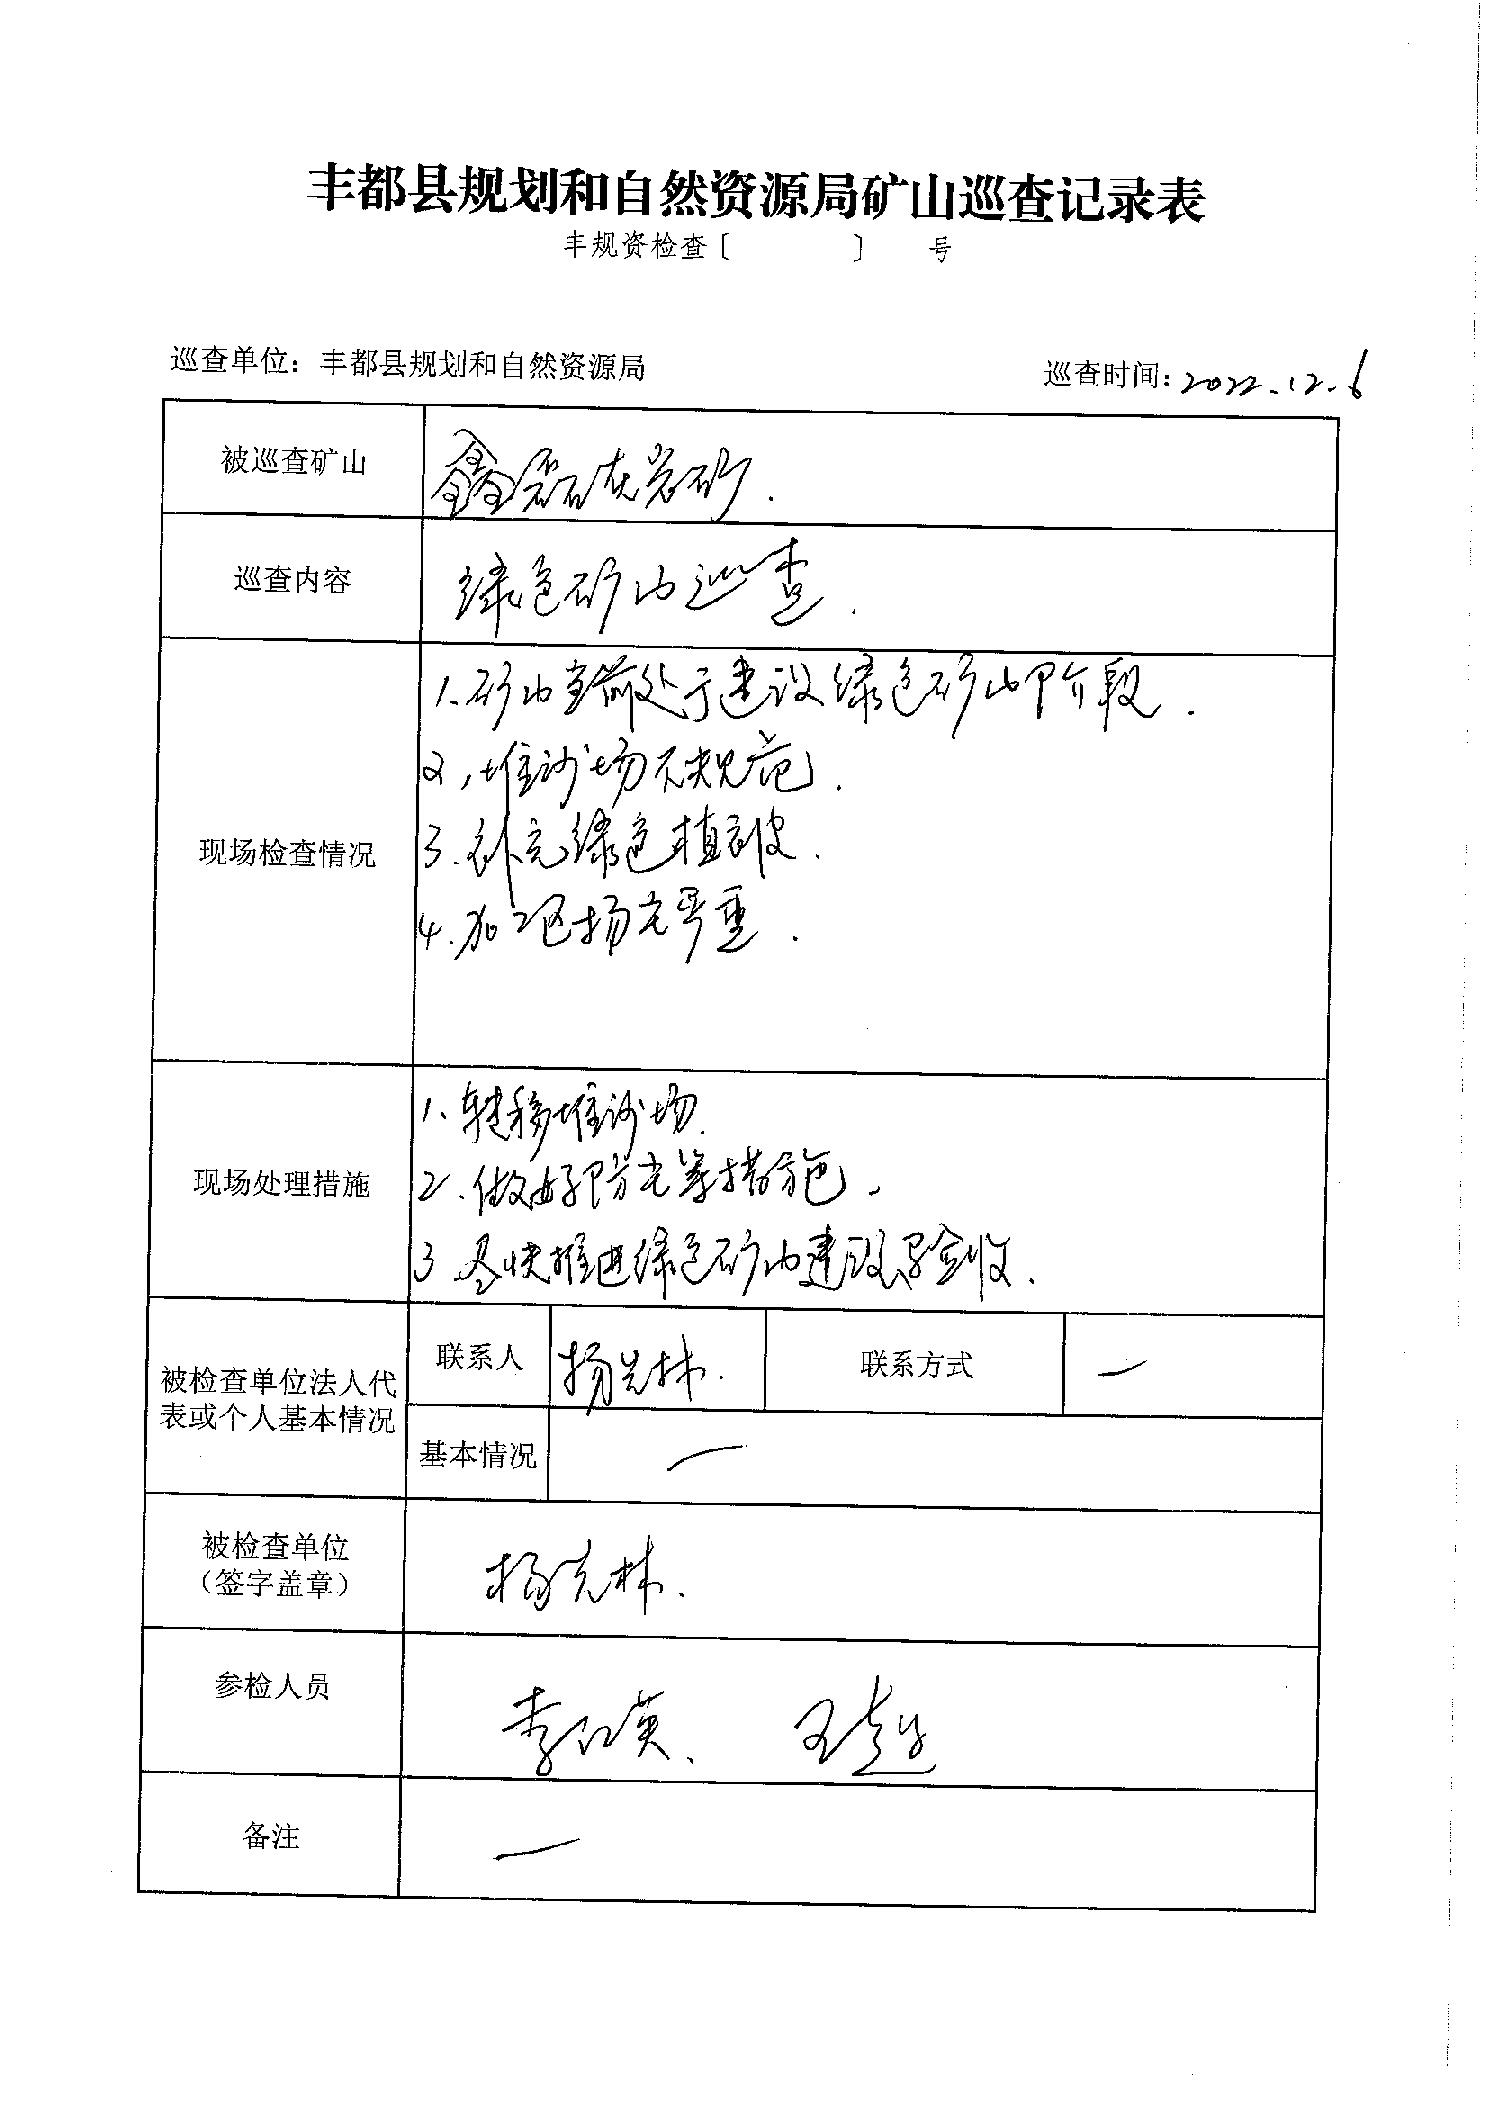 丰都县规划和自然资源局矿山巡查记录表
丰规资检查〔 〕 号
巡查单位：丰都县规划和自然资源局 巡查时间：2022.12.6
被巡查矿山 鑫磊灰岩矿.
巡查内容 绿色矿山巡查.
现场检查情况
1、矿山当前处于建设绿色矿山阶段.
2、堆沙场不规范.
3.补充绿色植被.
4.加工区扬尘严重.
现场处理措施
1、转移堆沙场.
2.做好防尘等措施.
3 尽快推进绿色矿山建设及验收.
被检查单位法人代
表或个人基本情况
联系人 杨光林. 联系方式 一
基本情况 一
被检查单位
（签字盖章） 杨光林.
参检人员 李红英、 王超
备注 一